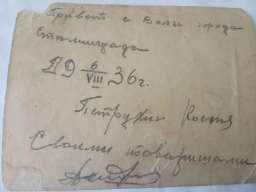 Привет с Волги города
Сталинграда
19 6/VIII 36 г.
Петрухин Костя
Своими товарищами